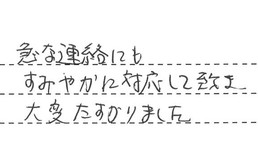 急な連絡にも
すみやかに対応して致き
大変たすかりました